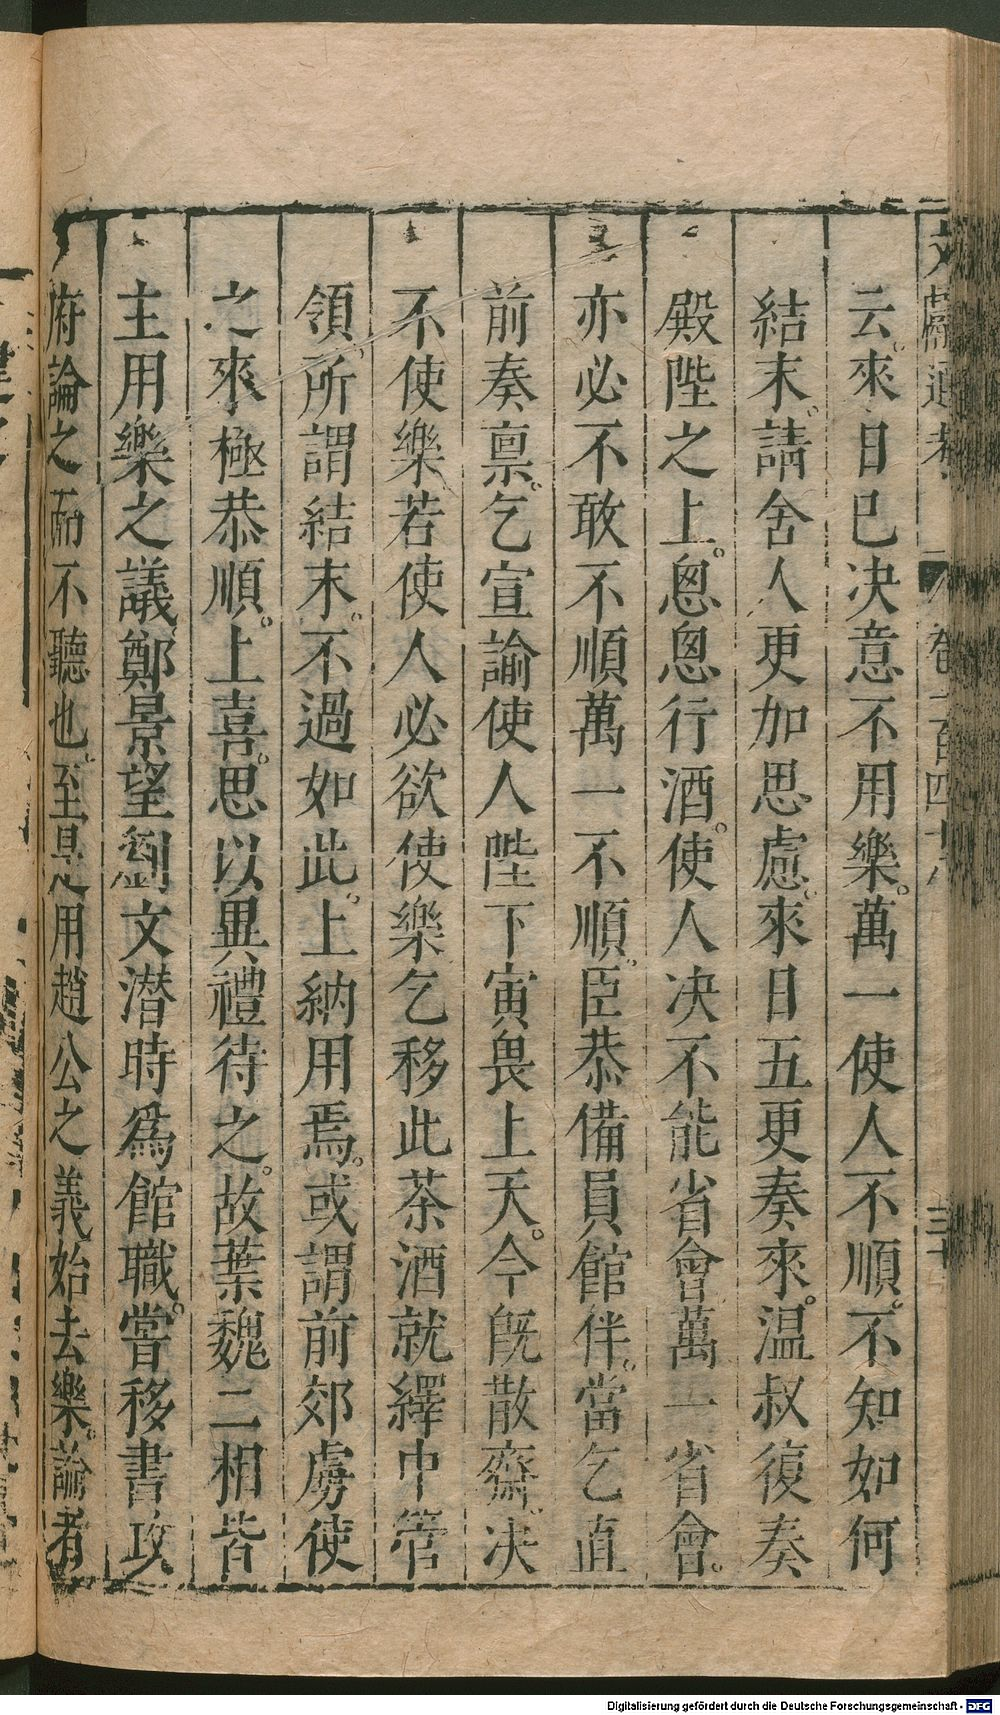 文獻通考 卷一百四十八 三十
云來日已決意不用樂萬一使人不順不知如何
結末請舍人更加思慮來日五更奏來温叔復奏
殿陛之上怱怱行酒使人决不能省會萬一省會
亦必不敢不順萬一不順臣恭備員館伴當乞直
前奏禀乞宣諭使人陛下寅畏上天今旣散齋决
不使樂若使人必欲使樂乞移此茶酒就繹中管
領所謂結末不過如此上納用焉或謂前郊虜使
之來極恭順上喜思以異禮待之故葉魏二相皆
主用樂之議鄭景望劉文潜時爲館職嘗移書攻
府論之而不聽也至是用趙公之義始去樂論者
Digitalisierung gefördert durch die Deutsche Forschungsgemeinschaft - DFG